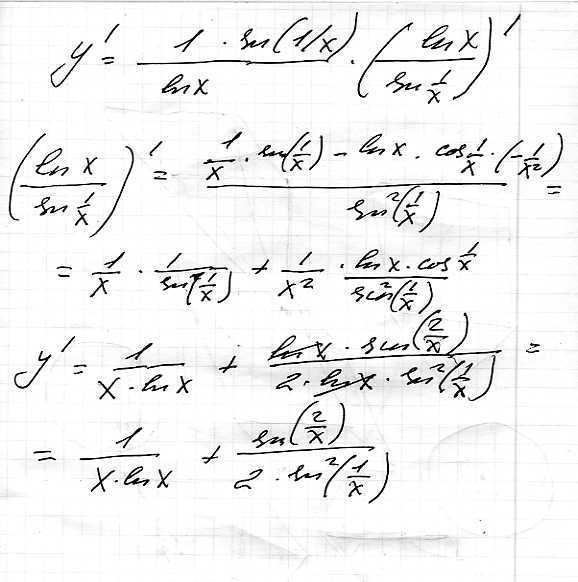 y' = \frac{1 \cdot \sin(1/x)}{\ln x} \cdot \left( \frac{\ln x}{\sin \frac{1}{x}} \right)'
\left( \frac{\ln x}{\sin \frac{1}{x}} \right)' = \frac{\frac{1}{x} \cdot \sin(\frac{1}{x}) - \ln x \cdot \cos \frac{1}{x} \cdot (-\frac{1}{x^2})}{\sin^2(\frac{1}{x})} =
= \frac{1}{x} \cdot \frac{1}{\sin(\frac{1}{x})} + \frac{1}{x^2} \cdot \frac{\ln x \cdot \cos \frac{1}{x}}{\sin^2(\frac{1}{x})}
y' = \frac{1}{x \cdot \ln x} + \frac{\ln x \cdot \sin(\frac{2}{x})}{2 \cdot \ln x \cdot \sin^2(\frac{1}{x})} =
= \frac{1}{x \cdot \ln x} + \frac{\sin(\frac{2}{x})}{2 \cdot \sin^2(\frac{1}{x})}